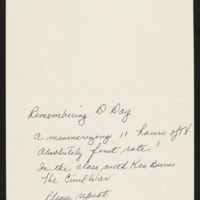 Remembering D Day
A mesmerizing 11 hours of TV
Absolutely first rate!
In the class with Ken Burns
The Civil War
Please repeat